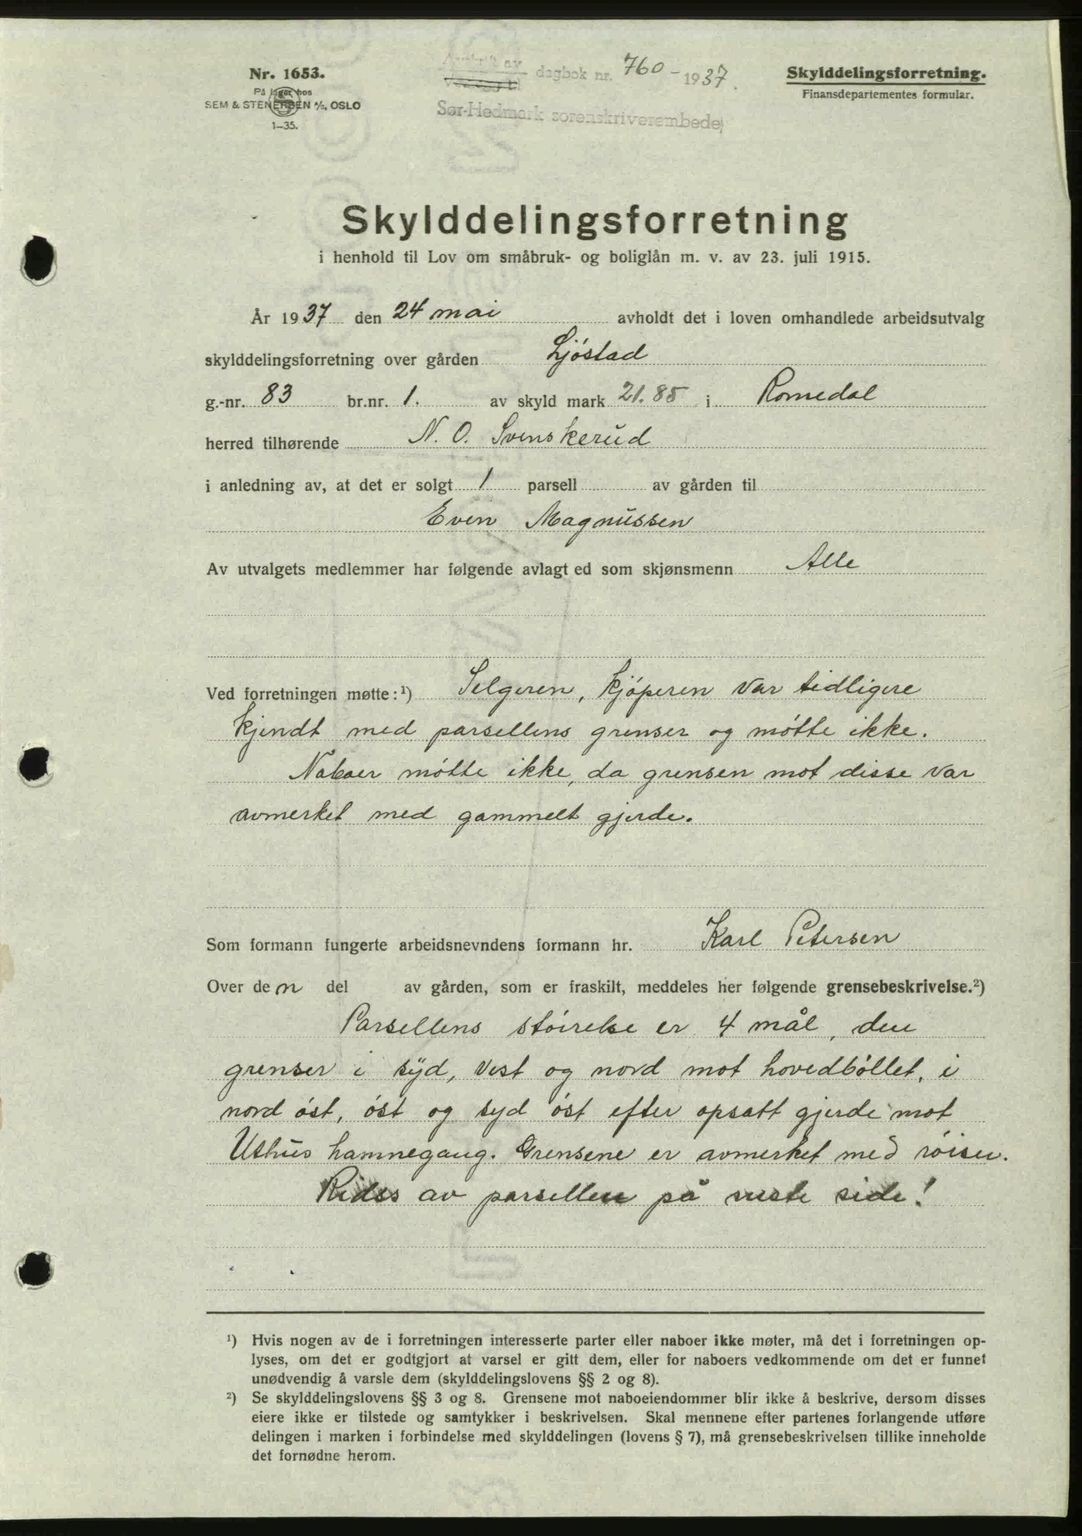 Nr. 1653.
På lager hos
SEM & STENERSEN A/S, OSLO
1—35.
Avskrift av dagbok nr. 760 - 1937.
Sør-Hedmark sorenskriverembede
Skylddelingsforretning.
Finansdepartementes formular.
Skylddelingsforretning
i henhold til Lov om småbruk- og boliglån m. v. av 23. juli 1915.
År 1937 den 24 mai avholdt det i loven omhandlede arbeidsutvalg
skylddelingsforretning over gården Ljøstad
g.-nr. 83 br.nr. 1. av skyld mark 21.85 i Romedal
herred tilhørende N. O. Svenskerud
i anledning av, at det er solgt 1 parsell av gården til
Even Magnussen
Av utvalgets medlemmer har følgende avlagt ed som skjønsmenn Alle
Ved forretningen møtte:¹) Selgeren, kjøperen var tidligere
kjendt med parsellens grenser og møtte ikke.
Naboer møtte ikke, da grensen mot disse var
avmerket med gammelt gjerde.
Som formann fungerte arbeidsnevndens formann hr. Karl Petersen
Over den del av gården, som er fraskilt, meddeles her følgende grensebeskrivelse.²)
Parsellens støirelse er 4 mål, den
grenser i syd, vest og nord mot hovedbøllet, i
nord øst, øst og syd øst efter opsatt gjerde mot
Uthus hamnegang. Grensene er avmerket med røiser.
Ridss av parsellen på neste side!
¹) Hvis nogen av de i forretningen interesserte parter eller naboer ikke møter, må det i forretningen op-
lyses, om det er godtgjort at varsel er gitt dem, eller for naboers vedkommende om det er funnet
unødvendig å varsle dem (skylddelingslovens §§ 2 og 8).
²) Se skylddelingslovens §§ 3 og 8. Grensene mot naboeiendommer blir ikke å beskrive, dersom disses
eiere ikke er tilstede og samtykker i beskrivelsen. Skal mennene efter partenes forlangende utføre
delingen i marken i forbindelse med skylddelingen (lovens § 7), må grensebeskrivelsen tillike inneholde
det fornødne herom.